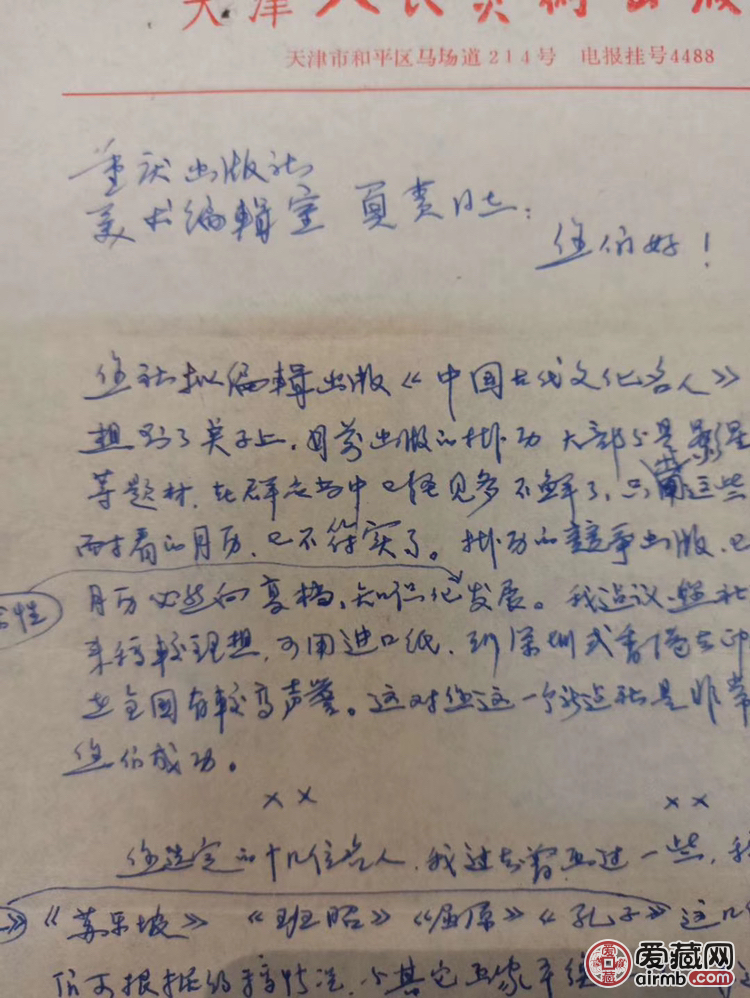 天津人民美術出版
天津市和平区马场道214号 电报挂号4488
重庆出版社
美术编辑室 负责同志:
您们好!
您社拟编辑出版《中国古代文化名人》
想到了关子上,目前出版的挂历大部分是影星
等题材,在群众当中已经见多不鲜了,只 这些
耐看的月历,已不符实了。挂历的竞争出版,已
月历必然向高档、知识化发展。我建议 社
来稿较理想,可用进口纸,到深圳或香港去印
在全国有较高声誉。这对您这一个 社是非常
您们成功。
×× ××
您选定的十几位名人,我过去曾画过一些,
《苏东坡》《班昭》《屈原》《孔子》这几
们可根据约稿情况,与其它画家平
爱藏网
airmb.com